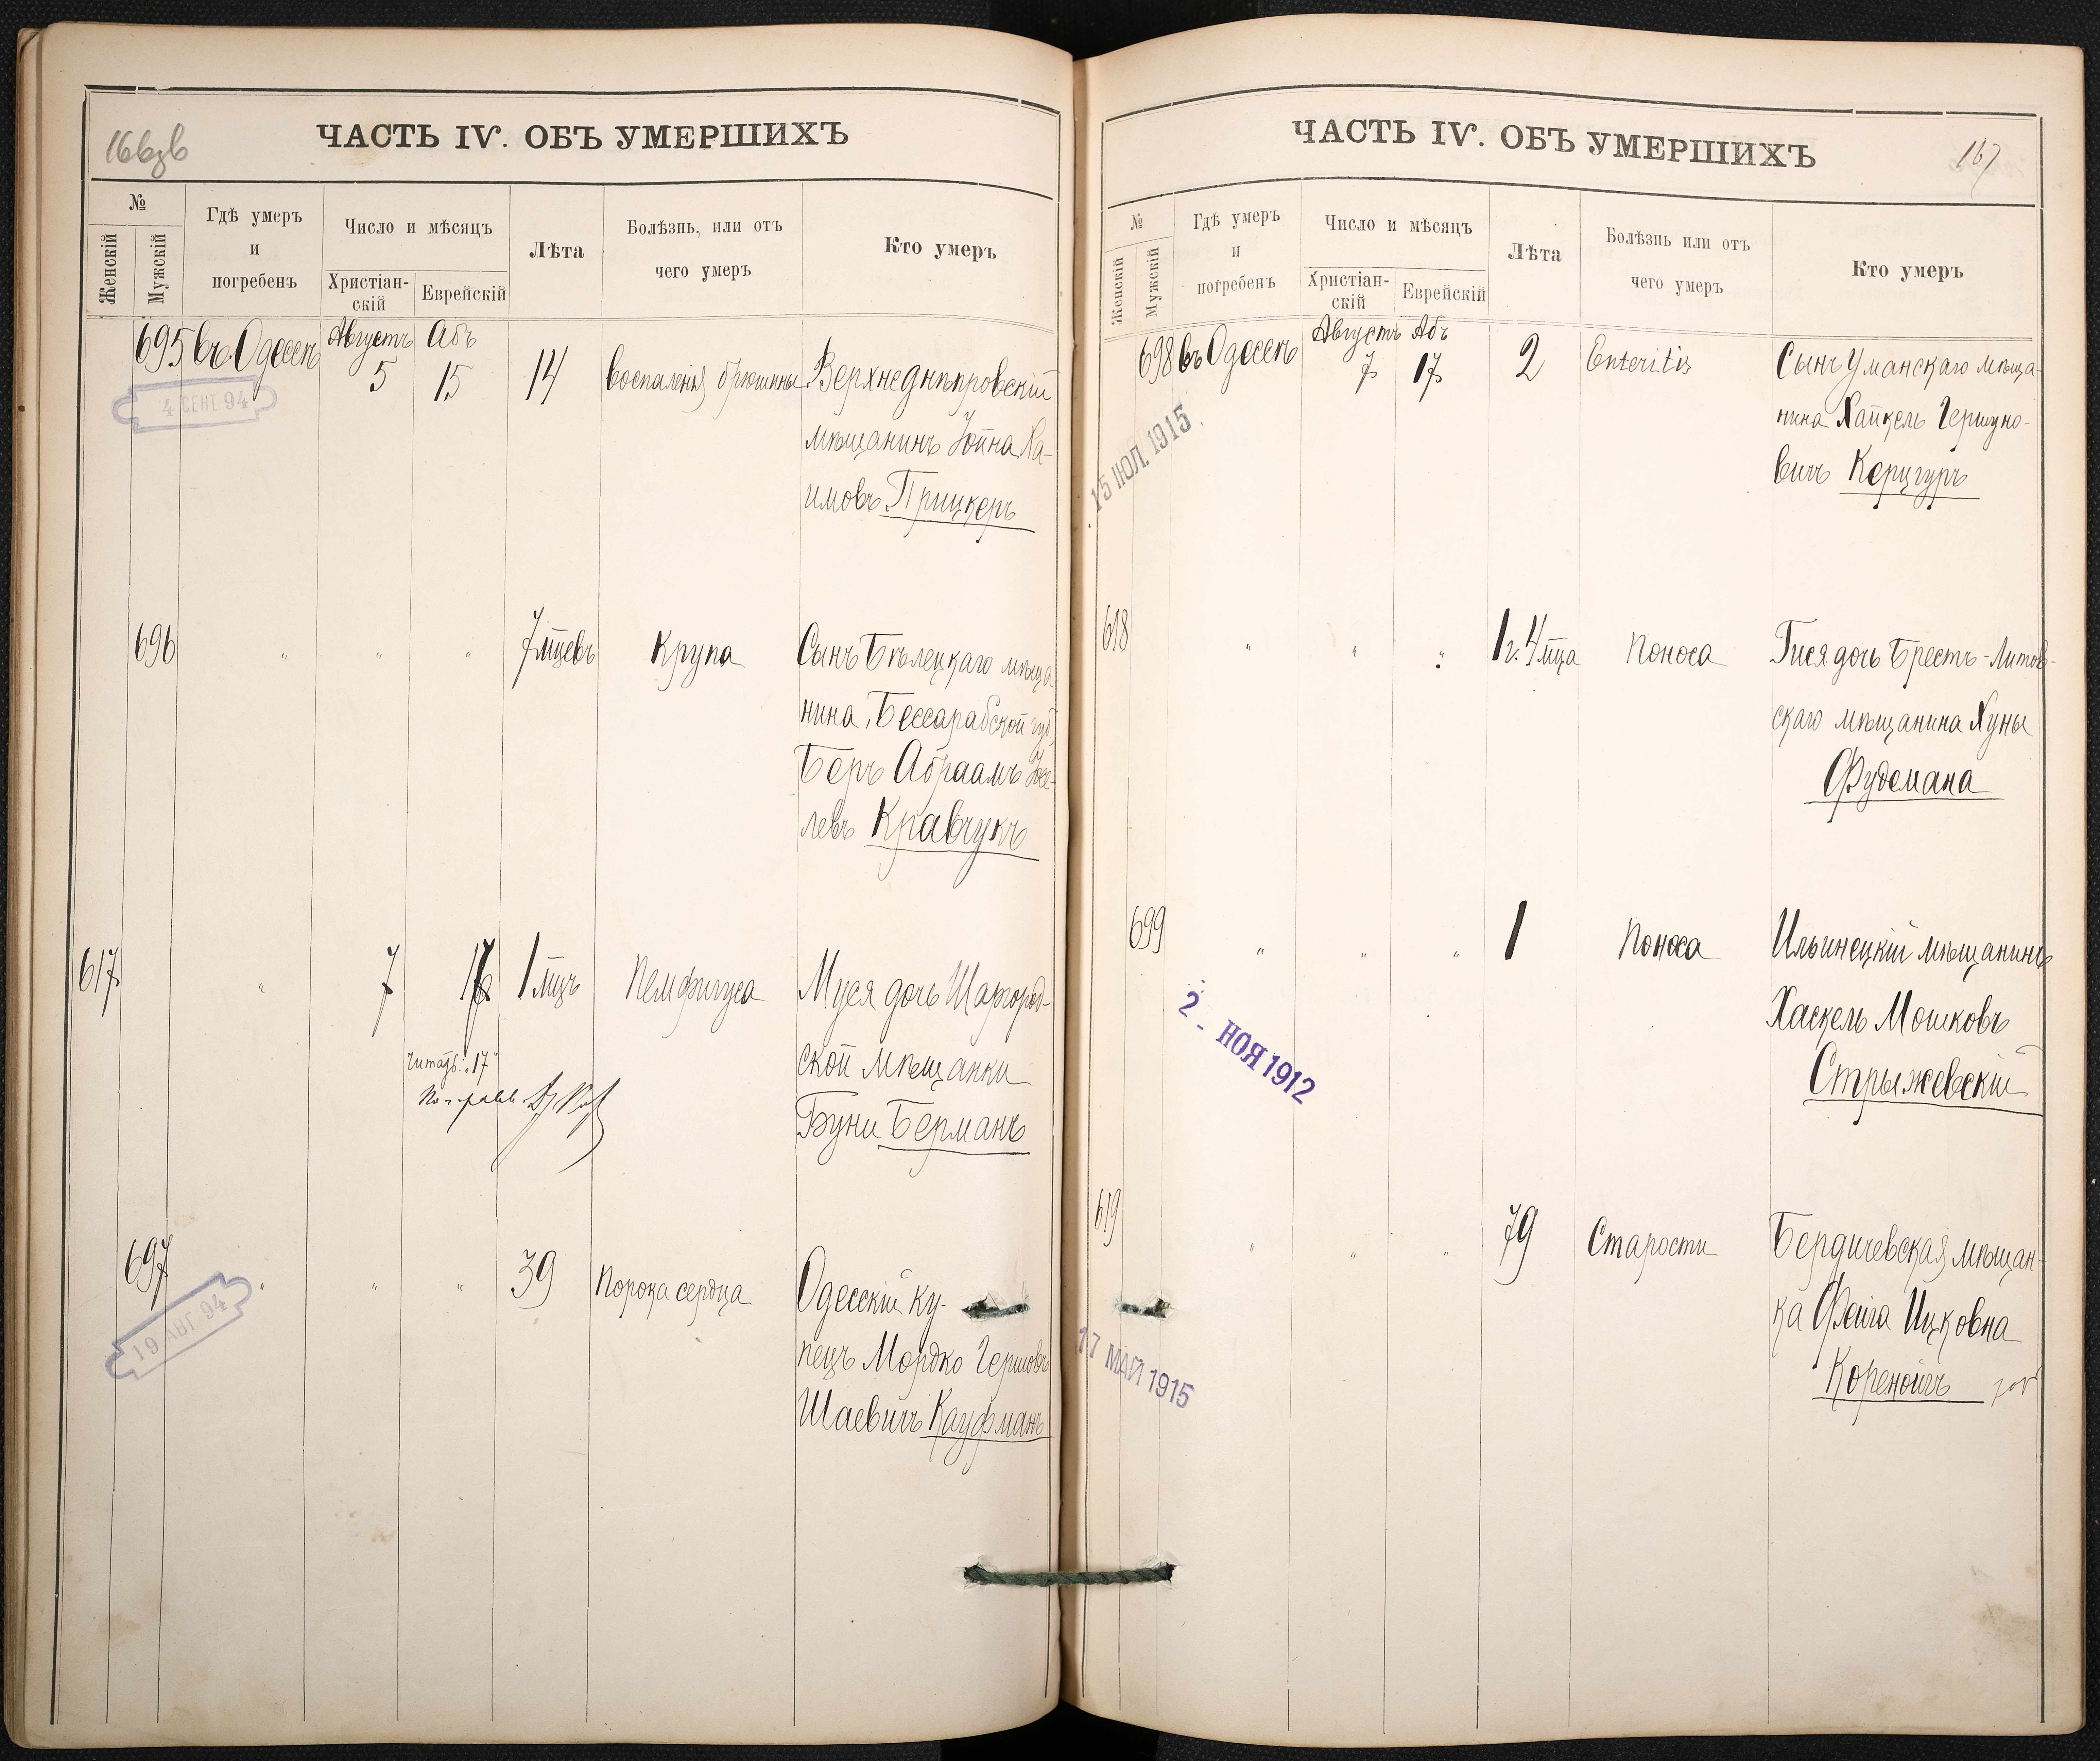 166 об
ЧАСТЬ IV. ОБЪ УМЕРШИХЪ
№
Женскій
Мужскій
Гдѣ умеръ
и
погребенъ
Число и мѣсяцъ
Христіан-
скій
Еврейскій
Лѣта
Болѣзнь, или отъ
чего умеръ
Кто умеръ
695 въ Одессѣ Августъ 5 Абъ 15 14 воспаленія брюшины Верхнеднѣпровскій
мѣщанинъ Іойна Ха-
имовъ Прицкеръ
4 СЕНТ 94
696 " " " 7 мцевъ Крупа Сынъ Бѣлецкаго мѣща
нина, Бессарабской губ.
Беръ Абраамъ Іосе-
левъ Кравчукъ
617 " 7 1 мцъ Пемфигуса Муся дочь Шаргород-
ской мѣщанки
Буни Берманъ
читать: "17"
697 " " " 39 Порока сердца Одесскій ку-
пецъ Мордко Гершовъ
Шаевичъ Кауфманъ
19 АВГ 94
167
ЧАСТЬ IV. ОБЪ УМЕРШИХЪ
№
Женскій
Мужскій
Гдѣ умеръ
и
погребенъ
Число и мѣсяцъ
Христіан-
скій
Еврейскій
Лѣта
Болѣзнь или отъ
чего умеръ
Кто умеръ
698 въ Одессѣ Августъ 7 Абъ 17 2 Enteritis Сынъ Уманскаго мѣща-
нина Хайкель Гершуно-
вичъ Керцгуръ
15 ІЮЛ. 1915
618 " " " 1 г. 4 мца Поноса Гися дочь Брестъ-Литов-
скаго мѣщанина Хуны
Фудемана
699 " " " 1 Поноса Ильинецкій мѣщанинъ
Хаскель Мошковъ
Стрыжевскій
2 - НОЯ 1912
619 " " " 79 Старости Бердичевская мѣщан-
ка Фейга Ицковна
17 МАЙ 1915